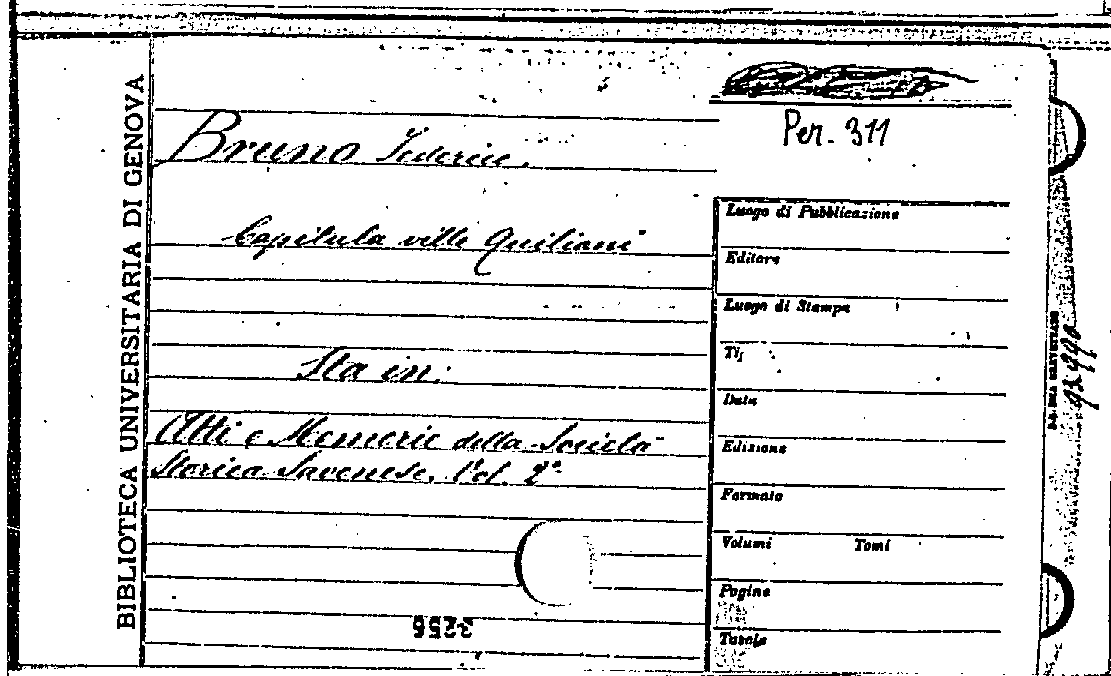 BIBLIOTECA UNIVERSITARIA DI GENOVA
Per. 311
Bruno Federico.
Capitula ville Quiliani
Sta in:
Atti e Memorie della Società
Storica Savonese. Vol. 2°
Luogo di Pubblicazione
Editore
Luogo di Stampa
Tip
Data
Edizione
Formato
Volumi Tomi
Pagine
Tavole
3256